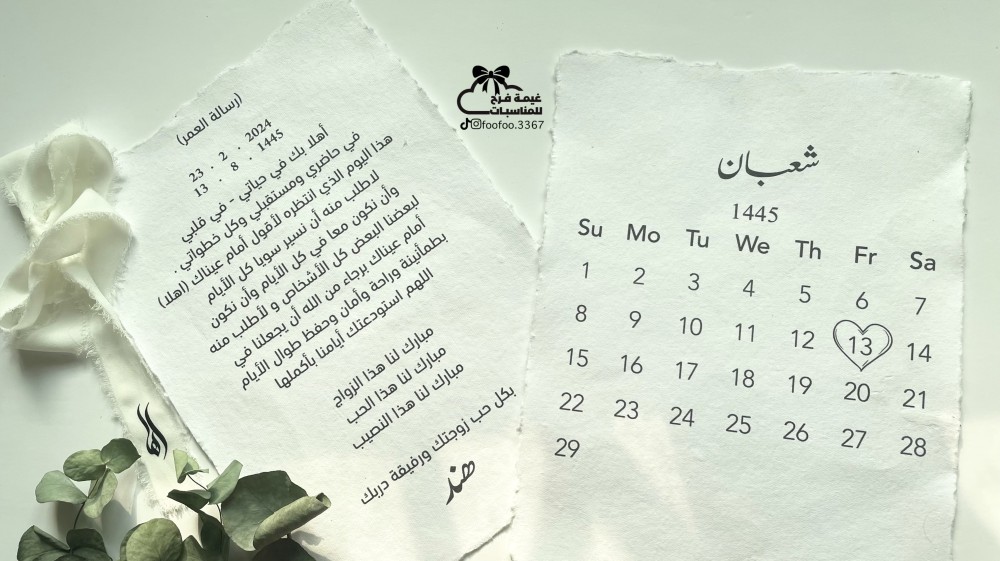 (رسالة العمر)
23 . 2 . 2024
13 . 8 . 1445
أهلا بك في حياتي - في قلبي
في حاضري ومستقبلي وكل خطواتي .
هذا اليوم الذي انتظره لأقول أمام عيناك (اهلا)
لاطلب منه أن نسير سويا كل الأيام
وأن نكون معا في كل الأيام وأن نكون
لبعضنا البعض كل الأشخاص و لأطلب منه
أمام عيناك برجاء من الله أن يجعلنا في
بطمأنينة وراحة وأمان وحفظ طوال الأيام
اللهم استودعتك أيامنا بأكملها
مبارك لنا هذا الزواج
مبارك لنا هذا الحب
مبارك لنا هذا النصيب
بكل حب زوجتك ورفيقة دربك
هند
غيمة فرح
للمناسبات
foofoo.3367
شعبان
1445
Su Mo Tu We Th Fr Sa
1 2 3 4 5 6 7
8 9 10 11 12 13 14
15 16 17 18 19 20 21
22 23 24 25 26 27 28
29